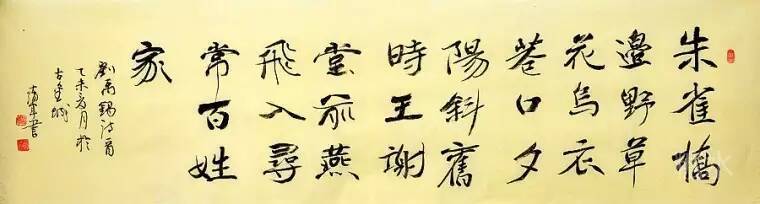 朱雀橋
邊野草
花烏衣
巷口夕
陽斜舊
時王謝
堂前燕
飛入尋
常百姓
家
劉禹錫詩一首
乙未月於
古城
書